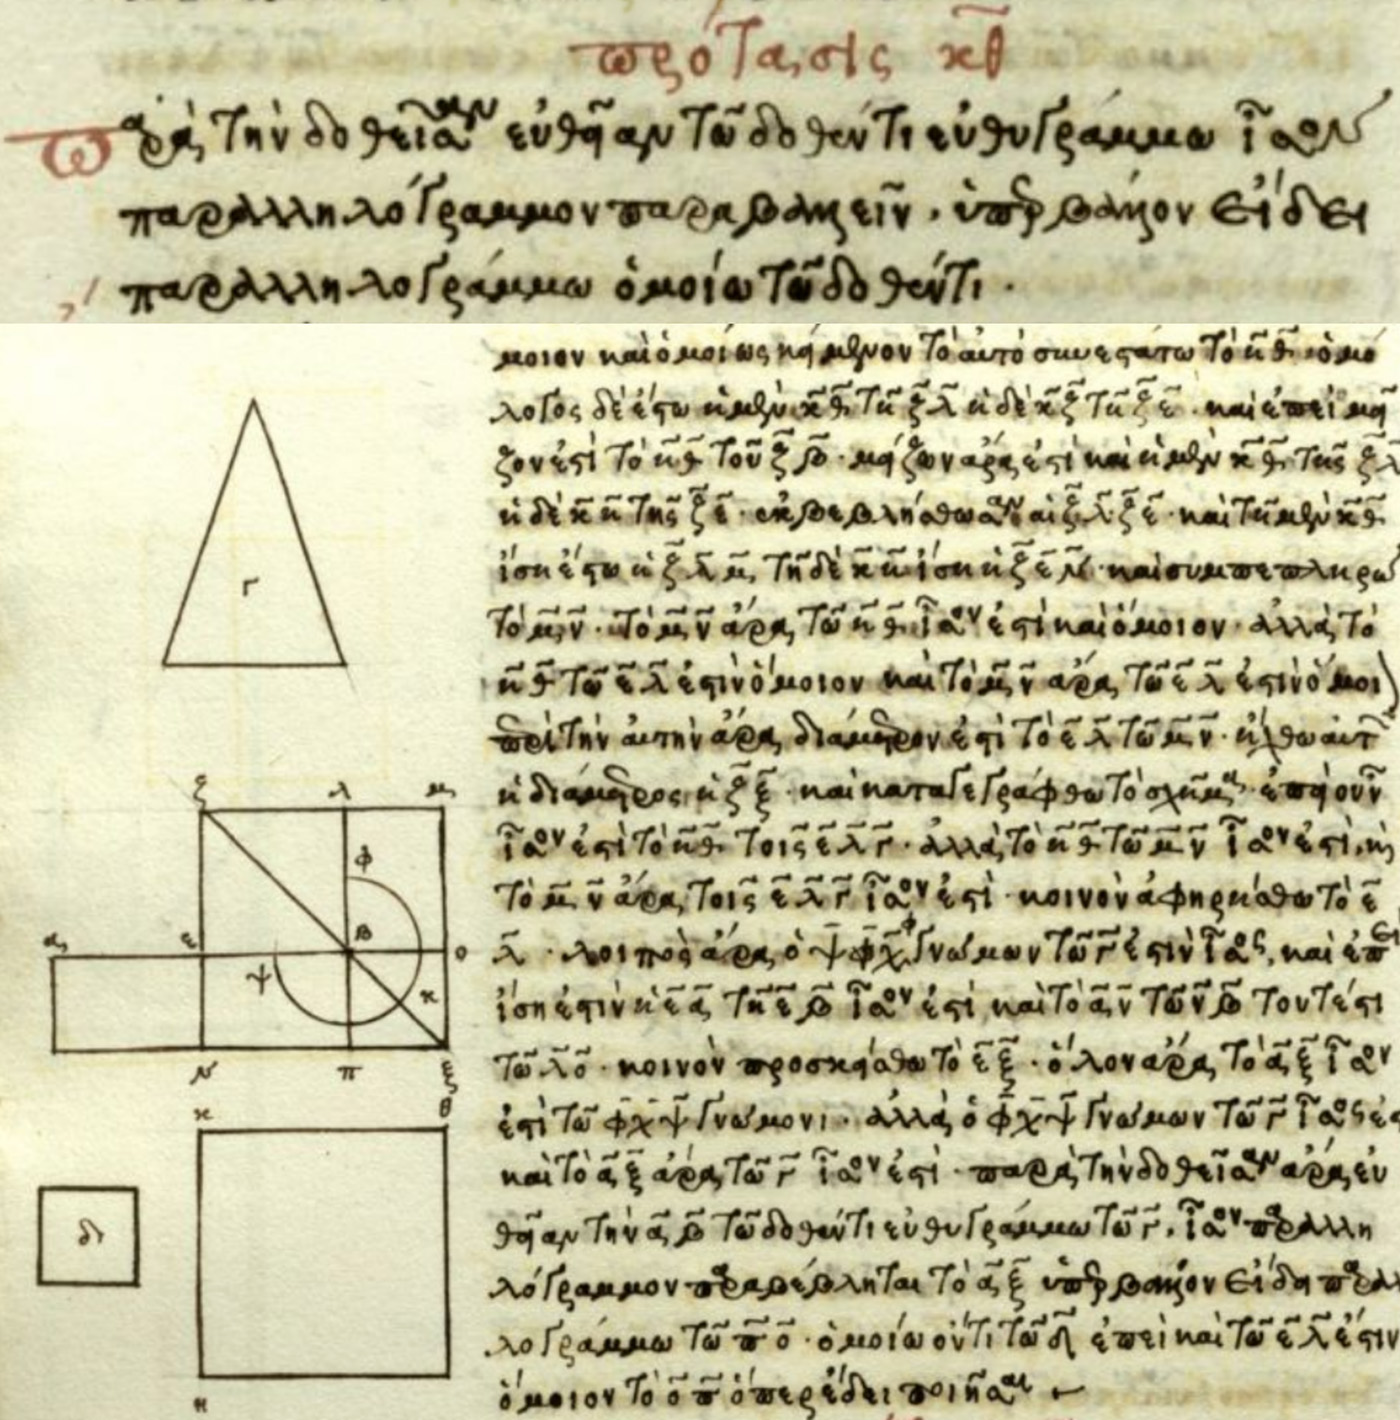 πρότασις κθ
παρὰ τὴν δοθεῖσαν εὐθεῖαν τῶ δοθέντι εὐθυγράμμω ἴσον
παραλληλόγραμμον παραβαλεῖν· ὑπερβάλλον εἴδει
παραλληλογράμμω ὁμοίω τῶ δοθέντι·
μοιον καὶ ὁμοίως κείμενον τὸ αὐτὸ συνεστάτω τὸ η̅θ̅· ὁμό
λογος δὲ ἔστω ἡ μὲν κ̅θ̅ τῆ ζ̅λ̅ ἡ δὲ κ̅η̅ τῆ ζ̅ε̅· καὶ ἐπεὶ μεῖ
ζον ἐστὶ τὸ η̅θ̅ τοῦ ζ̅β̅· μείζων ἄρα ἐστὶ καὶ ἡ μὲν κ̅θ̅ τῆς ζ̅λ̅
ἡ δὲ κ̅η̅ τῆς ζ̅ε̅· ἐκβεβλήσθωσαν αἱ ζ̅λ̅ ζ̅ε̅· καὶ τῆ μὲν κ̅θ̅
ἴση ἔστω ἡ ζ̅λ̅μ̅, τῆ δὲ κ̅η̅ ἴση ἡ ζ̅ε̅ν̅· καὶ συμπεπληρώ
τὸ μ̅ν̅· τὸ μ̅ν̅ ἄρα τῶ η̅θ̅ ἴσον ἐστὶ καὶ ὅμοιον· ἀλλὰ τὸ
η̅θ̅ τῶ ε̅λ̅ ἐστὶν ὅμοιον καὶ τὸ μ̅ν̅ ἄρα τῶ ε̅λ̅ ἐστὶν ὅμοι
περὶ τὴν αὐτὴν ἄρα διάμετρον ἐστὶ τὸ ε̅λ̅ τῶ μ̅ν̅· ἤχθω αὐτ
ἡ διάμετρος ἡ ζ̅ξ̅· καὶ καταγεγράφθω τὸ σχῆμα· ἐπεὶ οὖν
ἴσον ἐστὶ τὸ η̅θ̅ τοῖς ε̅λ̅ γ̅· ἀλλὰ τὸ η̅θ̅ τῶ μ̅ν̅ ἴσον ἐστὶ, κὶ
τὸ μ̅ν̅ ἄρα τοῖς ε̅λ̅ γ̅ ἴσον ἐστὶ· κοινὸν ἀφηρήσθω τὸ ε̅
λ̅· λοιπὸς ἄρα ὁ ψ̅φ̅χ̅ γνώμων τῶ γ̅ ἐστὶν ἴσος, καὶ ἐπεὶ
ἴση ἐστὶν ἡ ε̅α̅ τῆ ε̅β̅ ἴσον ἐστὶ καὶ τὸ α̅ν̅ τῶ ν̅β̅ τουτέστι
τῶ λ̅ο̅· κοινὸν προσκείσθω τὸ ε̅ξ̅· ὅλον ἄρα τὸ α̅ξ̅ ἴσον
ἐστὶ τῶ φ̅χ̅ψ̅ γνώμονι· ἀλλὰ ὁ φ̅χ̅ψ̅ γνώμων τῶ γ̅ ἴσος ἐσ
καὶ τὸ α̅ξ̅ ἄρα τῶ γ̅ ἴσον ἐστὶ· παρὰ τὴν δοθεῖσαν ἄρα εὐ
θεῖαν τὴν α̅β̅ τῶ δοθέντι εὐθυγράμμω τῶ γ̅, ἴσον παραλλη
λόγραμμον παραβέβληται τὸ α̅ξ̅ ὑπερβάλλον εἴδει παραλ
λογράμμω τῶ π̅ο̅· ὁμοίω ὄντι τῶ δ̅ ἐπεὶ καὶ τῶ ε̅λ̅ ἐστὶν
ὅμοιον τὸ ο̅π̅ ὅπερ ἔδει ποιῆσαι
γ
ζ λ μ
φ
α ε β ο
ψ χ
ν π ξ
κ θ
δ
η